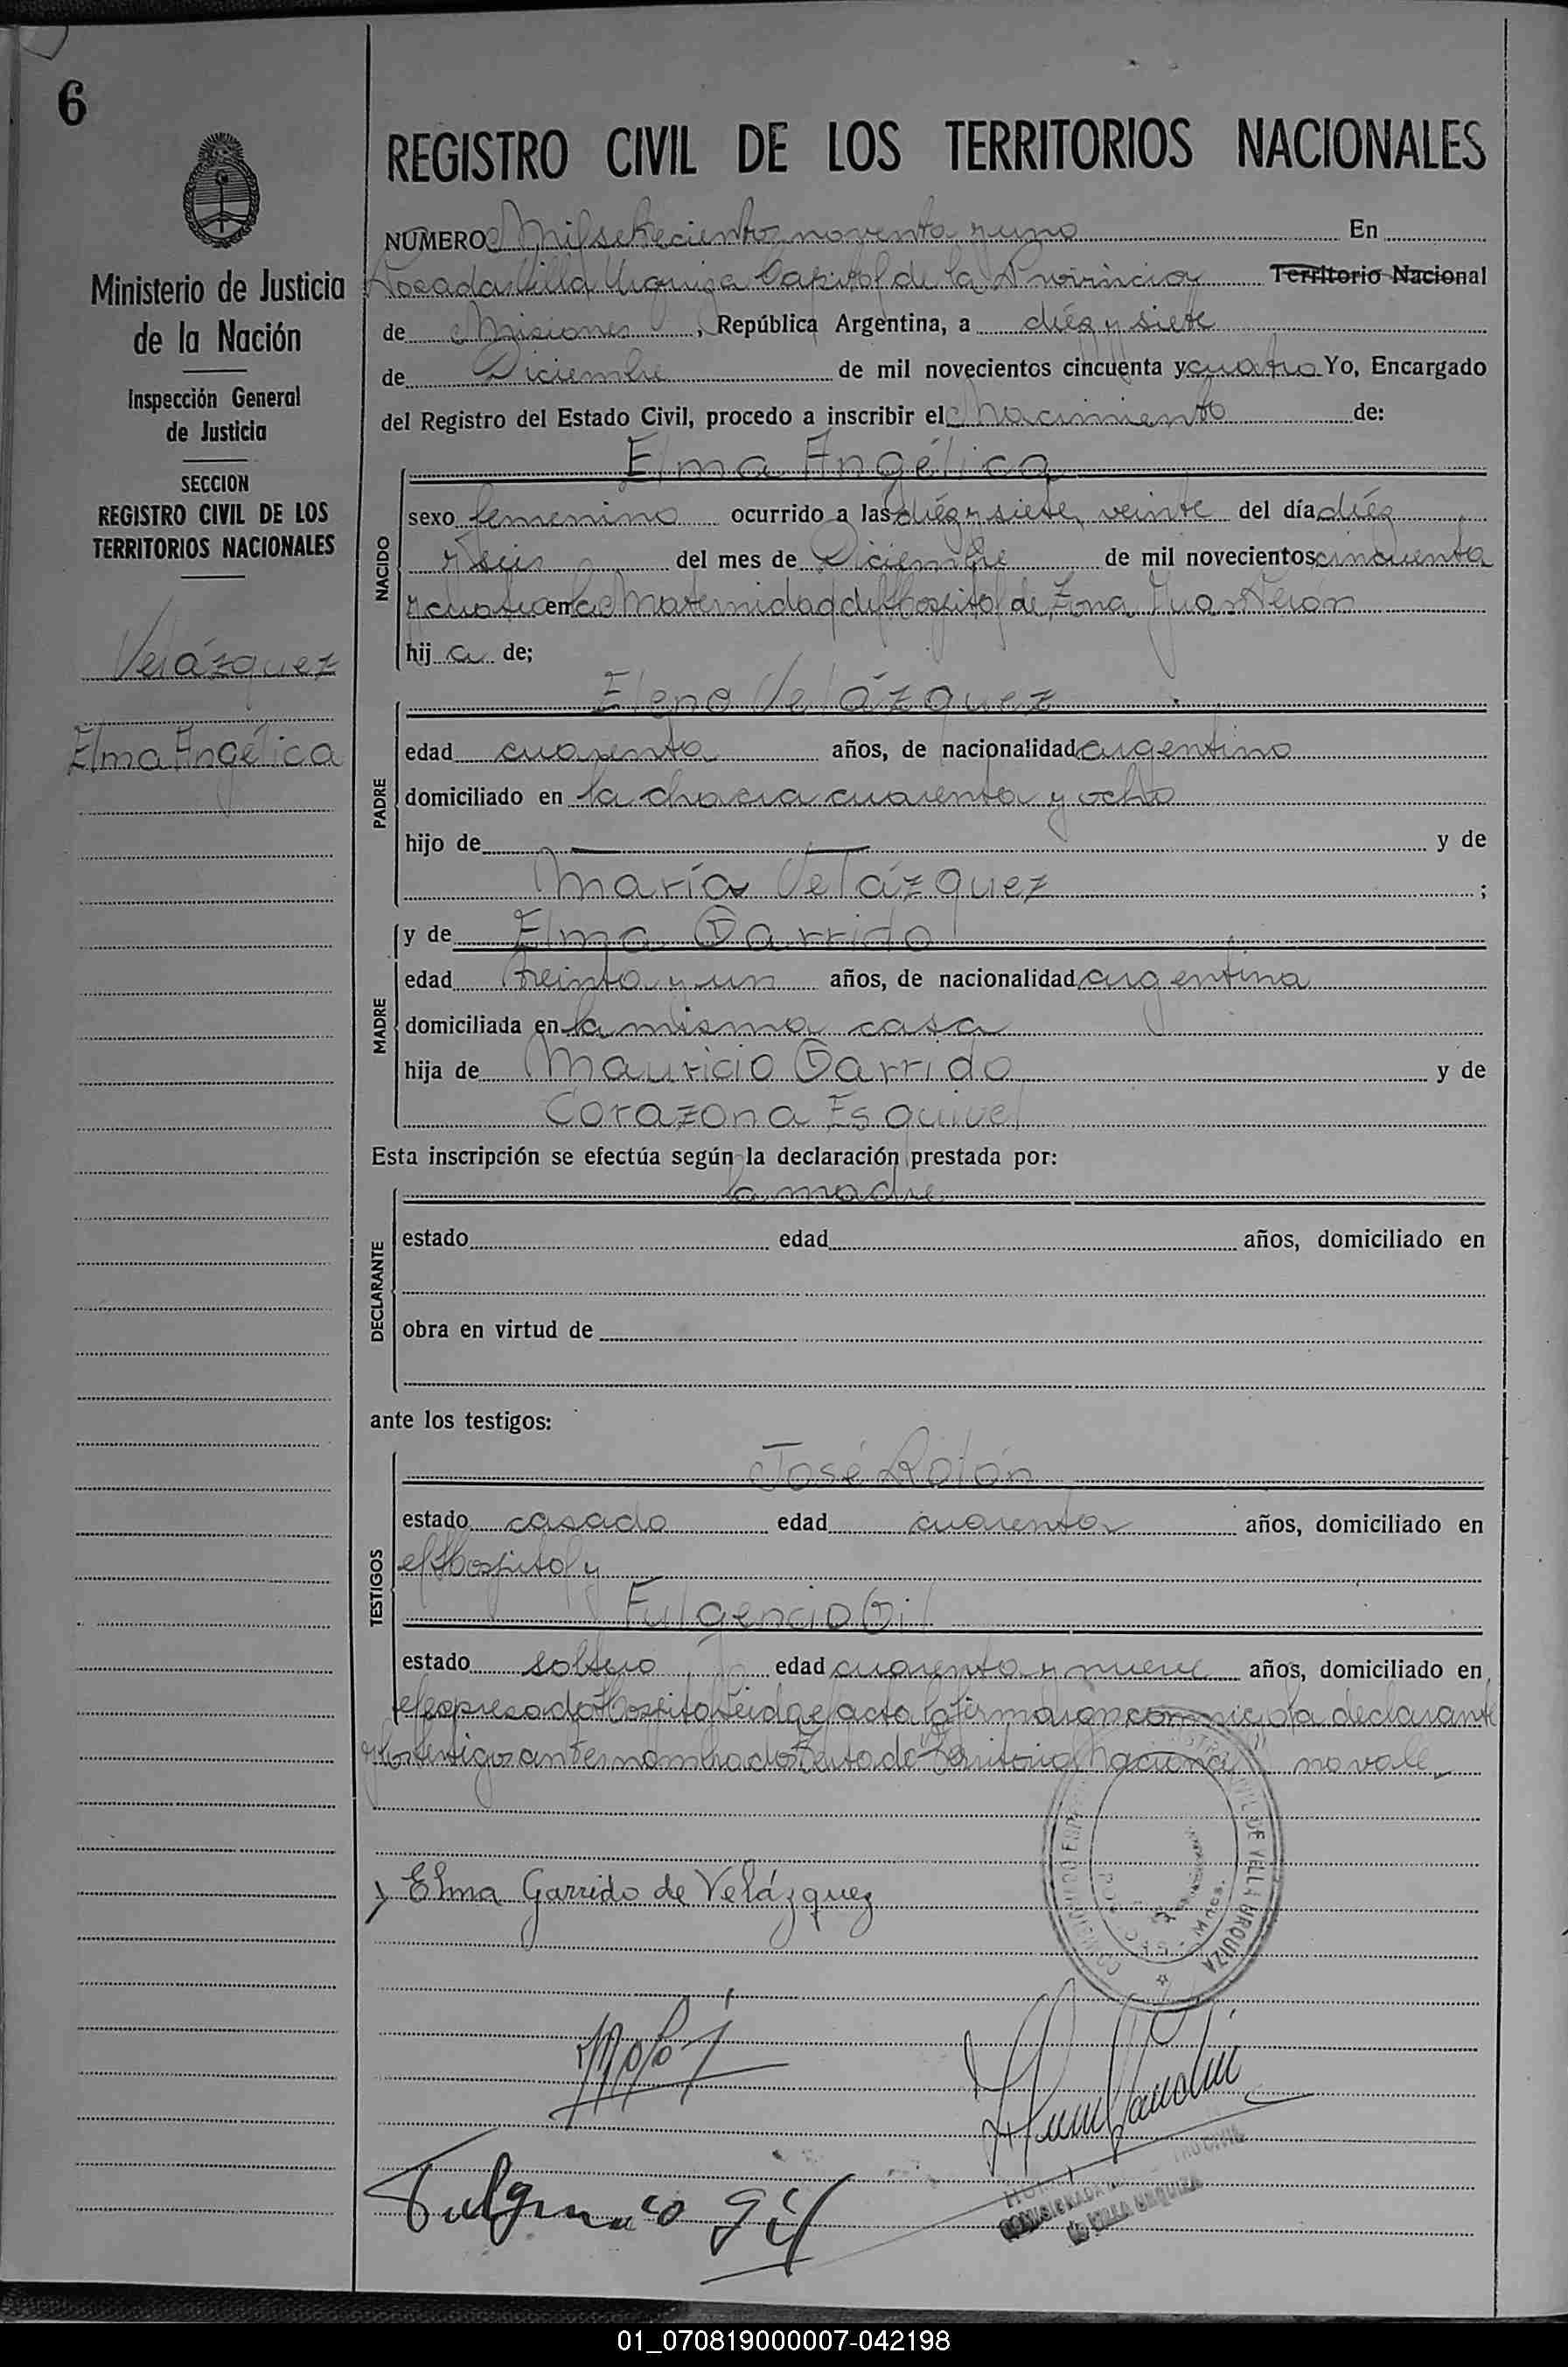 6
Ministerio de Justicia
de la Nación
Inspección General
de Justicia
SECCION
REGISTRO CIVIL DE LOS
TERRITORIOS NACIONALES
Velázquez
Elma Angélica
REGISTRO CIVIL DE LOS TERRITORIOS NACIONALES
NUMERO Mil setecientos noventa y uno En
Posadas Villa Urquiza Capital de la Provincia Territorio Nacional
de Misiones, República Argentina, a diéz y siete
de Diciembre de mil novecientos cincuenta y cuatro Yo, Encargado
del Registro del Estado Civil, procedo a inscribir el Nacimiento de:
Elma Angélica
NACIDO
sexo femenino ocurrido a las diéz y siete, veinte del día diéz
y seis del mes de Diciembre de mil novecientos cincuenta
y cuatro en la Maternidad del Hospital de Zona Juan Perón
hij a de;
Eleno Velázquez
PADRE
edad cuarenta años, de nacionalidad argentino
domiciliado en la chacra cuarenta y ocho
hijo de y de
María Velázquez ;
y de Elma Garrido
MADRE
edad treinta y un años, de nacionalidad argentina
domiciliada en la misma casa
hija de Mauricio Garrido y de
Corazona Esquivel
Esta inscripción se efectúa según la declaración prestada por:
la madre
DECLARANTE
estado edad años, domiciliado en
obra en virtud de
ante los testigos:
José Rolón
TESTIGOS
estado casado edad cuarenta años, domiciliado en
el Hospital y
Fulgencio Gil
estado soltero edad cuarenta y nueve años, domiciliado en
el expresado Hospital Leída el acta la firmaron conmigo la declarante
y los testigos antes nombrados Testado Territorio Nacional no vale
Elma Garrido de Velázquez
CIVIL DE VILLA URQUIZA
Fulgencio Gil
de VILLA URQUIZA
01_070819000007-042198